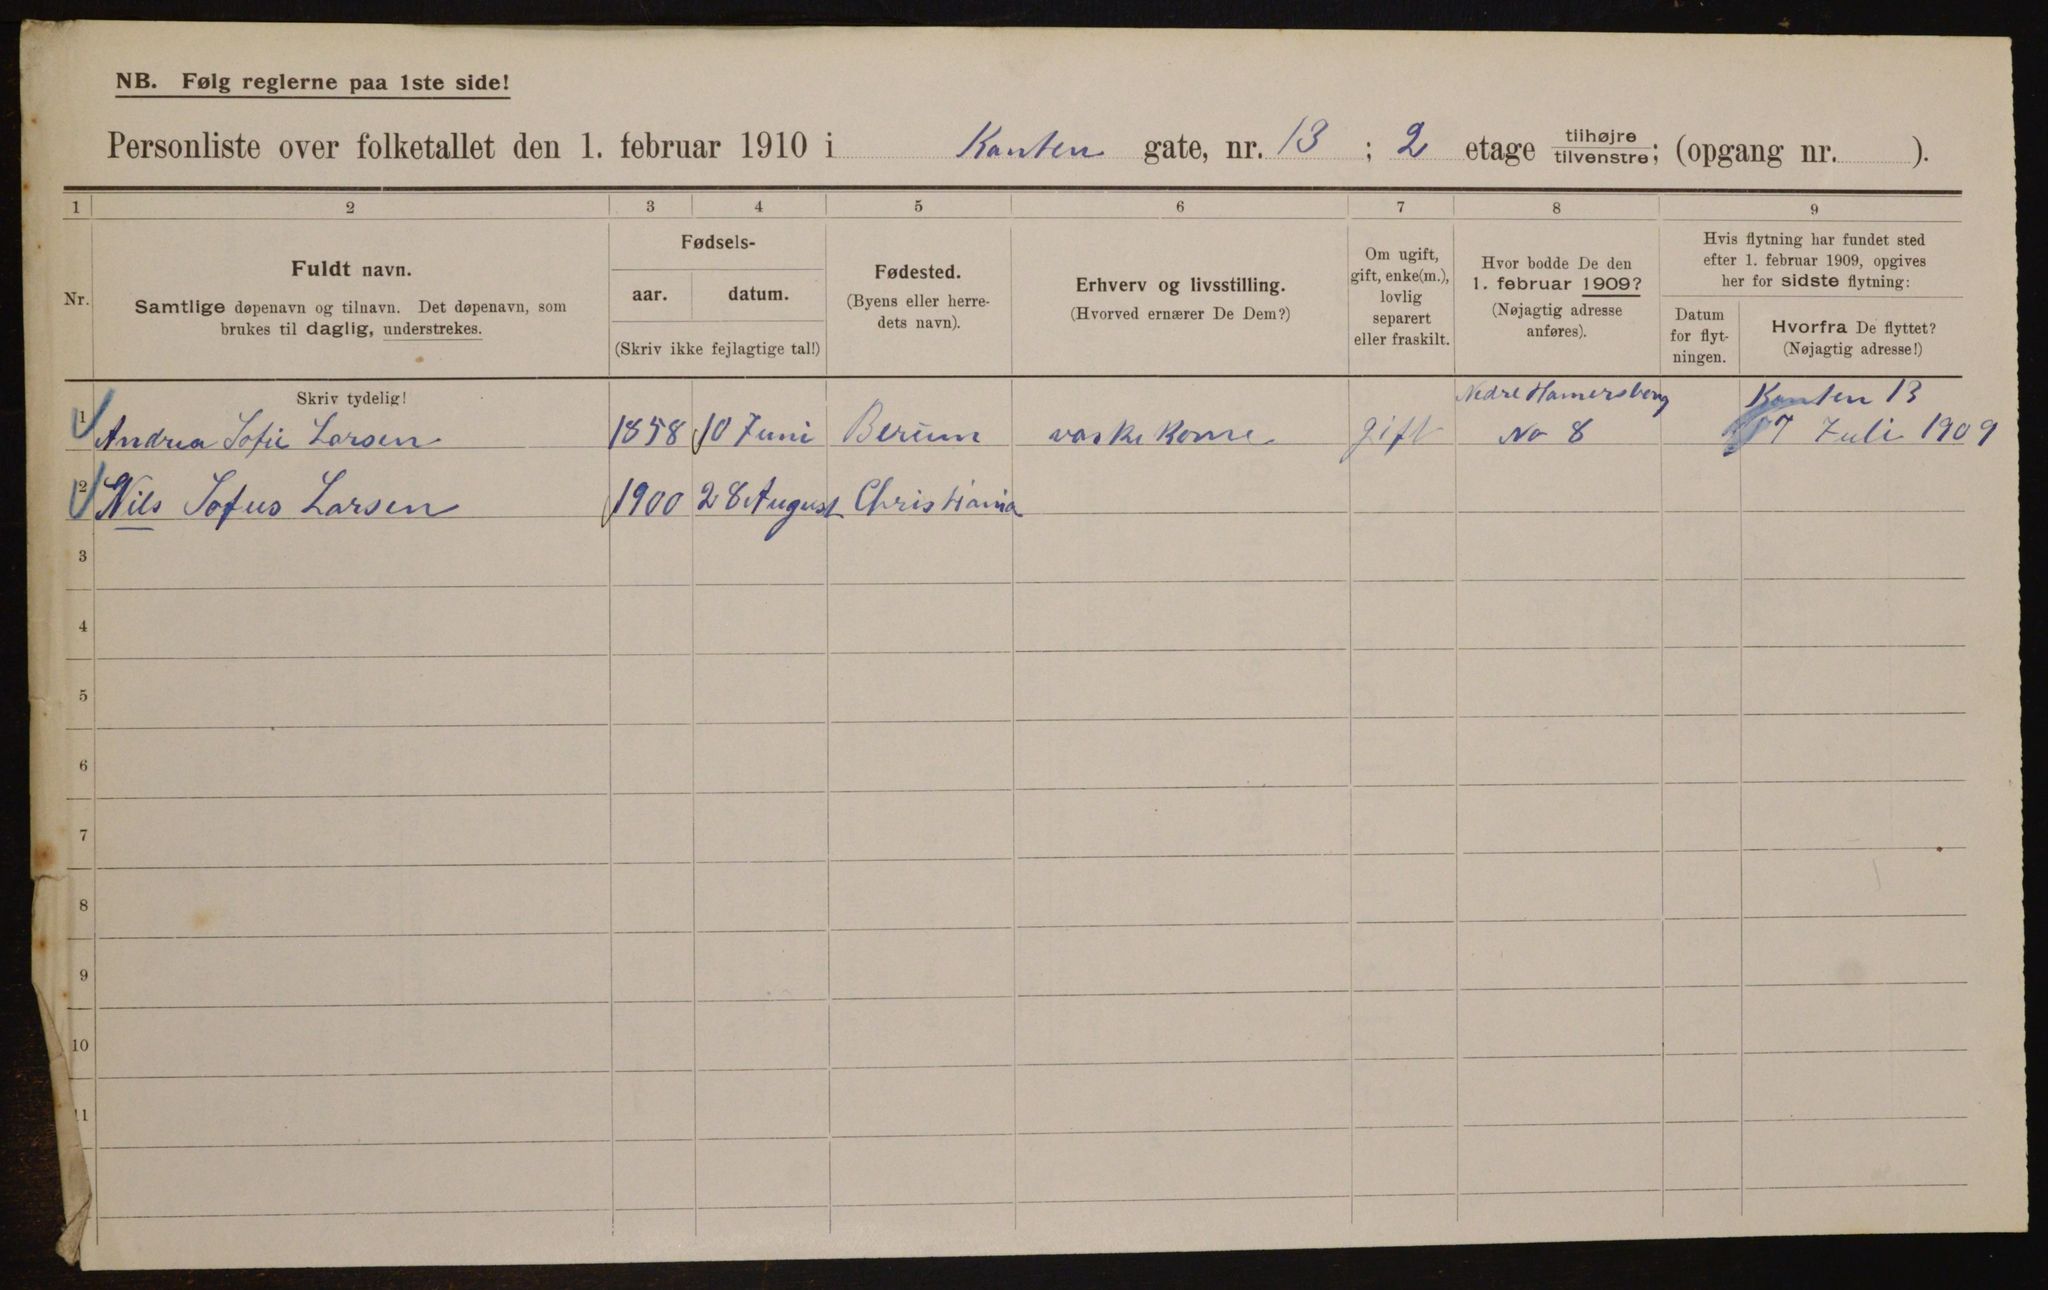 NB. Følg reglerne paa 1ste side!
Personliste over folketallet den 1. februar 1910 i Kanten gate, nr. 13 ; 2 etage tilhøjre/tilvenstre; (opgang nr. ).
1 2 3 4 5 6 7 8 9
Nr.
Fuldt navn.
Samtlige døpenavn og tilnavn. Det døpenavn, som
brukes til daglig, understrekes.
Fødsels-
aar. datum.
(Skriv ikke fejlagtige tal!)
Fødested.
(Byens eller herre-
dets navn).
Erhverv og livsstilling.
(Hvorved ernærer De Dem?)
Om ugift,
gift, enke(m.),
lovlig
separert
eller fraskilt.
Hvor bodde De den
1. februar 1909?
(Nøjagtig adresse
anføres).
Hvis flytning har fundet sted
efter 1. februar 1909, opgives
her for sidste flytning:
Datum
for flyt-
ningen.
Hvorfra De flyttet?
(Nøjagtig adresse!)
Skriv tydelig!
Nedre Hamersberg Kanten 13
1 Andrea Sofie Larsen 1858 10 Juni Berum vaske kone gift No 8 7 Juli 1909
2 Nils Sofus Larsen 1900 28 August Christiania
3
4
5
6
7
8
9
10
11